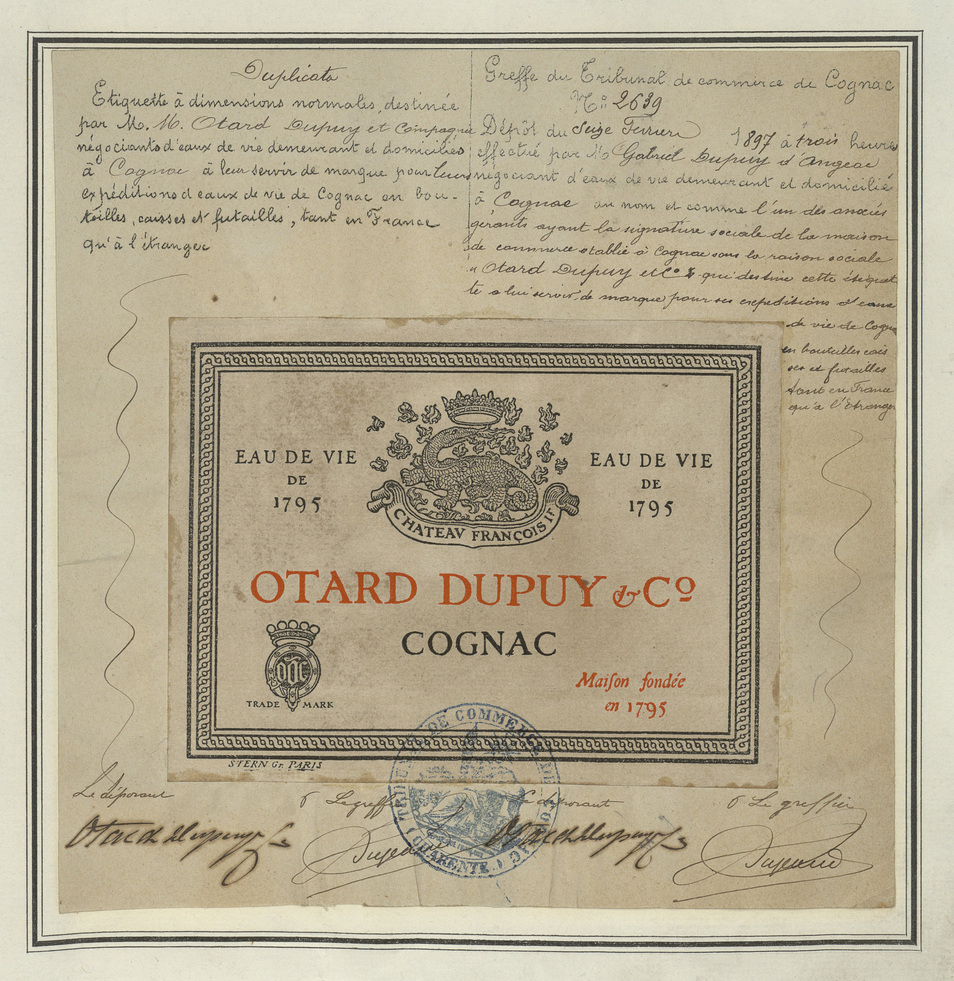 Duplicata
Etiquette à dimensions normales, destinée
par M. M. Otard Dupuy et Compagnie
négociants d'eaux de vie demeurant et domiciliés
à Cognac à leur servir de marque pour leurs
expéditions d'eaux de vie de Cognac en bou-
teilles, caisses et futailles, tant en France
qu'à l'étranger
Greffe du Tribunal de commerce de Cognac
No: 2639
Dépôt du Seize 1897 à trois heures
effectué par M Gabriel Dupuy d'Angeac
négociant d'eaux de vie demeurant et domicilié
à Cognac au nom et comme l'un des associés
gérants ayant la signature sociale de la maison
de commerce établie à Cognac sous la raison sociale
"Otard Dupuy et Co" qui destine cette étiquet
te a lui servir de marque pour ses expéditions d'eaux
de vie de Cognac
en bouteilles cais
ses et futailles
tant en France
qu'a l'étranger
EAU DE VIE
DE
1795
EAU DE VIE
DE
1795
CHATEAV FRANÇOIS IR
OTARD DUPUY & Co
COGNAC
TRADE MARK
Maiſon fondée
en 1795
STERN Gr. PARIS
TRIBUNAL DE COMMERCE DE COGNAC
(CHARENTE)
Le déposant
P Le greffier
Le déposant
P Le greffier
Otard Dupuy & Co
Otard Dupuy & Co